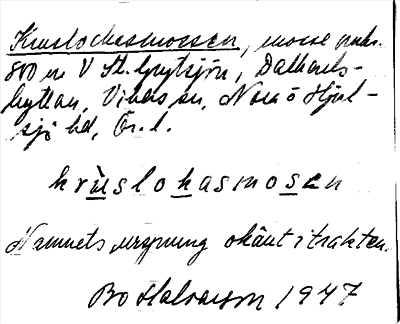 Kruslockasmossen, mosse omkr.
800 m V St. Grytsjön, Dalkarls-
hyttan, Vikers sn, Nora o Hjul-
sjö bd, Ör. l.
krùslokasmosen
Namnets ursprung okänt i trakten.
Bo Halvarson 1947